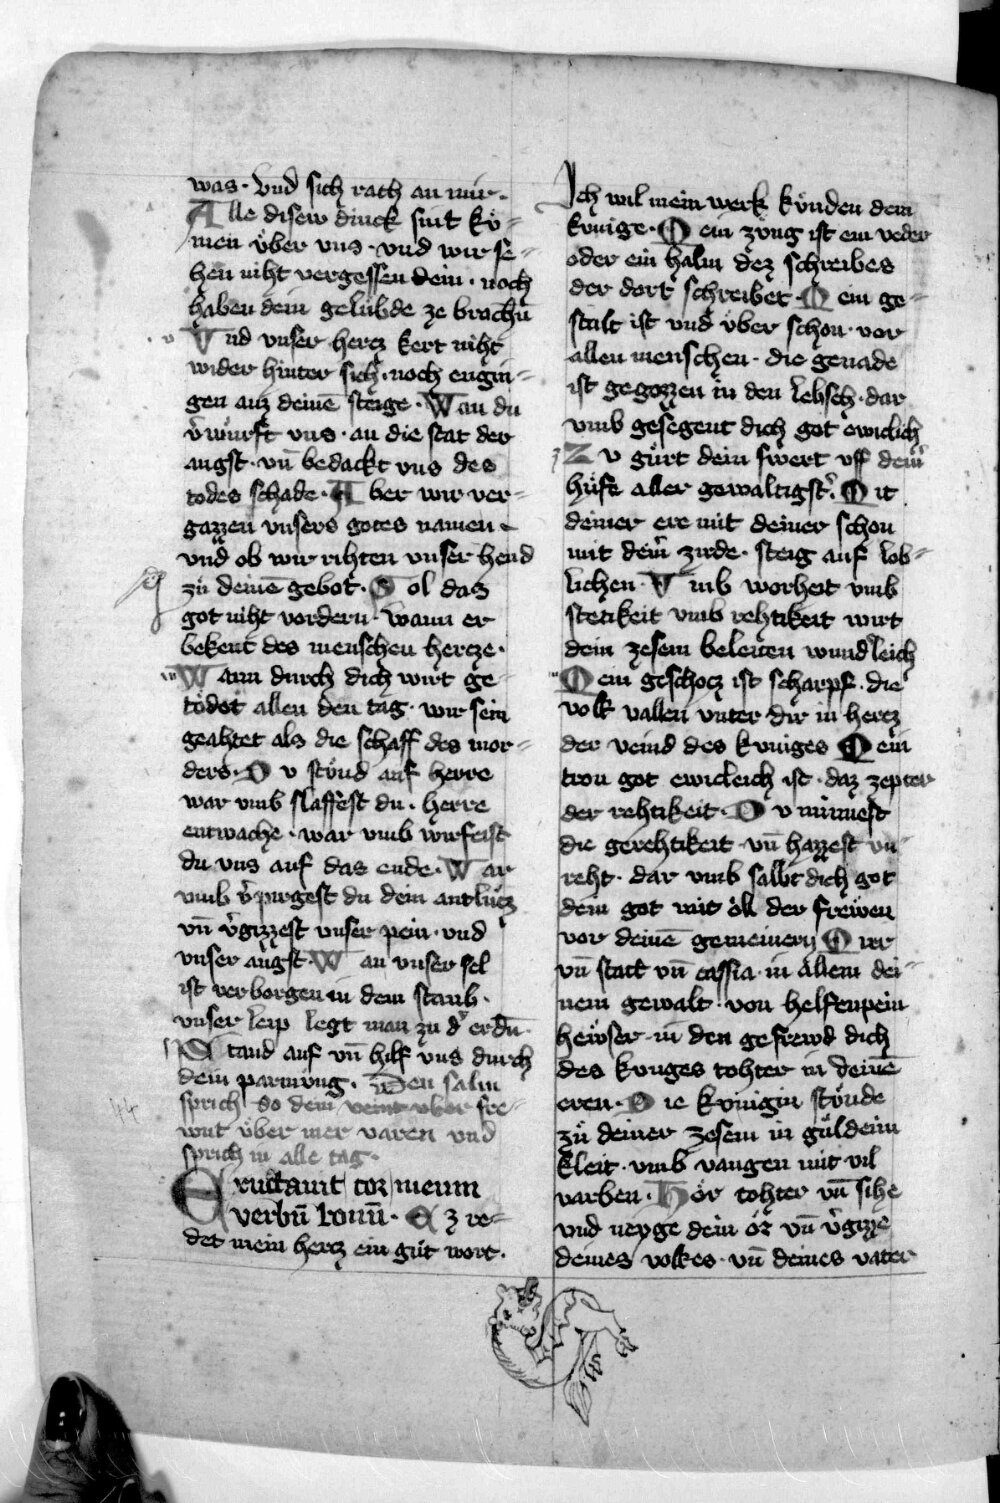 was · vnd sich rach an mir ·
Alle disew dinck sint kö-
men über vns · vnd wir se-
hen niht vergessen dein · noch
haben dein gelübde ze brachn̄
Vnd vnser hercz kert niht
wider hinter sich · noch engin-
gen auz deinē steige · Wan du
v̓würft vns · an die stat der
angst · vn̄ bedackt vns des
todes schade · Aber wir ver-
gazzen vnsers gotes namen ·
vnd ob wir rihten vnser hend
zů deinē gebot · Sol daz
got niht vordern · wann er
bekent des menschen hercze ·
Wann durch dich wirt ge-
tödet allen den tag · wir sein
geahtet als die schaff des mor-
ders · Du stönd auf herre
war vmb slaffest du · herre
entwache · war vmb wirfeist
du vns auf das ende · War
vmb v̓pirgest du dein antlücz
vn̄ v̓gizzest vnser pein · vnd
vnser angst · Wan vnser sel
ist verborgen in dem staub ·
vnser leip legt man zu d̓ erdn̄ ·
Stand auf vn̄ hilf vns durch
dein parmung · Den salm
sprich so dein veint vber fre-
mt über mer varen vnd
sprich in alle tag ·
Eructauit cor meum
verbū bonū · Ez re-
det mein hercz ein gůt wort ·
Ich wil mein werk künden dem
kvnige · Mein zvng ist ein veder
oder ein halm dez schreibes
der dort schreibet · Dein ge-
stalt ist vnd über schon · vor
allen menschen · die genade
ist gegozzen in den lebsch · dar
vmb gesegent dich got ewiclich
Zu gürt dein swert vff dein̓
hüfe aller gewaltigst̓ · Mit
deiner ere mit deiner schon
mit dein̓ zirde · steig auf lob-
lichen · Vmb worheit vmb
stetikeit vmb rehtikeit wirt
dein zesem beleiten wundˀleich
Dein geschocz ist scharpf · die
volk vallen vnter dir in hercz
der veind des kvniges Dein
tron got ewicleich ist · daz zepter
der rehtikeit · Du minnest
die gerehtikeit · vn̄ hazzest vn-
reht · dar vmb salbt dich got
dein got mit öl der frewen
vor deinē gemeinern Mirr
vn̄ statt vn̄ cassia · in allem dei-
nem gewalt · von helfenpein
hewser · in den gefrewd dich
des kvniges tohter in deinē
eren · Die kvnigin stönde
zů deiner zesem in güldeim
kleit · vmb vangen mit vil
varben · Hör tohter vn̄ sihe
vnd neyge dein ör vn̄ v̓gizze
deines volkes · vn̄ deines vater